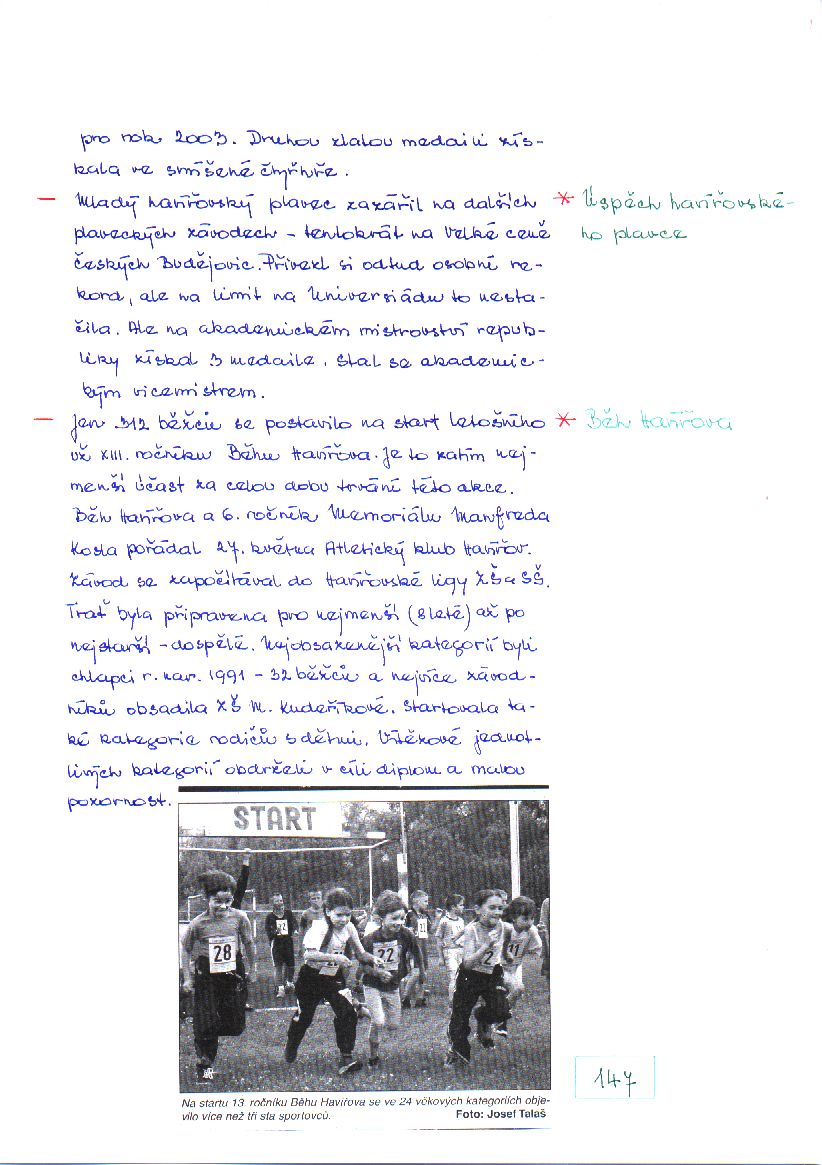 pro rok 2003. Druhou zlatou medaili zís-
kala ve smíšené čtyřhře.
— Mladý havířovský plavec zazářil na dalších
* Úspěch havířovské-
ho plavce
plaveckých závodech - tentokrát na Velké ceně
Českých Budějovic. Přivezl si odtud osobní re-
kord, ale na limit na Universiádu to nesta-
čila. Ale na akademickém mistrovství repub-
liky získal 3 medaile. Stal se akademic-
kým vicemistrem.
— Jen 312 běžců se postavilo na start letošního
* Běh Havířova
už XIII. ročníku Běhu Havířova. Je to zatím nej-
menší účast za celou dobu trvání této akce.
Běh Havířova a 6. ročník Memoriálu Manfreda
Kosla pořádal 27. května Atletický klub Havířov.
Závod se započítával do Havířovské ligy ZŠ a SŠ.
Trať byla připravena pro nejmenší (8 leté) až po
nejstarší - dospělé. Nejobsazenější kategorií byli
chlapci r. nar. 1991 - 32 běžců a nejvíce závod-
níků obsadila ZŠ M. Kudeříkové. Startovala ta-
ké kategorie rodičů s dětmi. Vítězové jednot-
livých kategorií obdrželi v cíli diplom a malou
pozornost.
START
28
22
2
11
Na startu 13. ročníku Běhu Havířova se ve 24 věkových kategoriích obje-
vilo více než tři sta sportovců. Foto: Josef Talaš
147